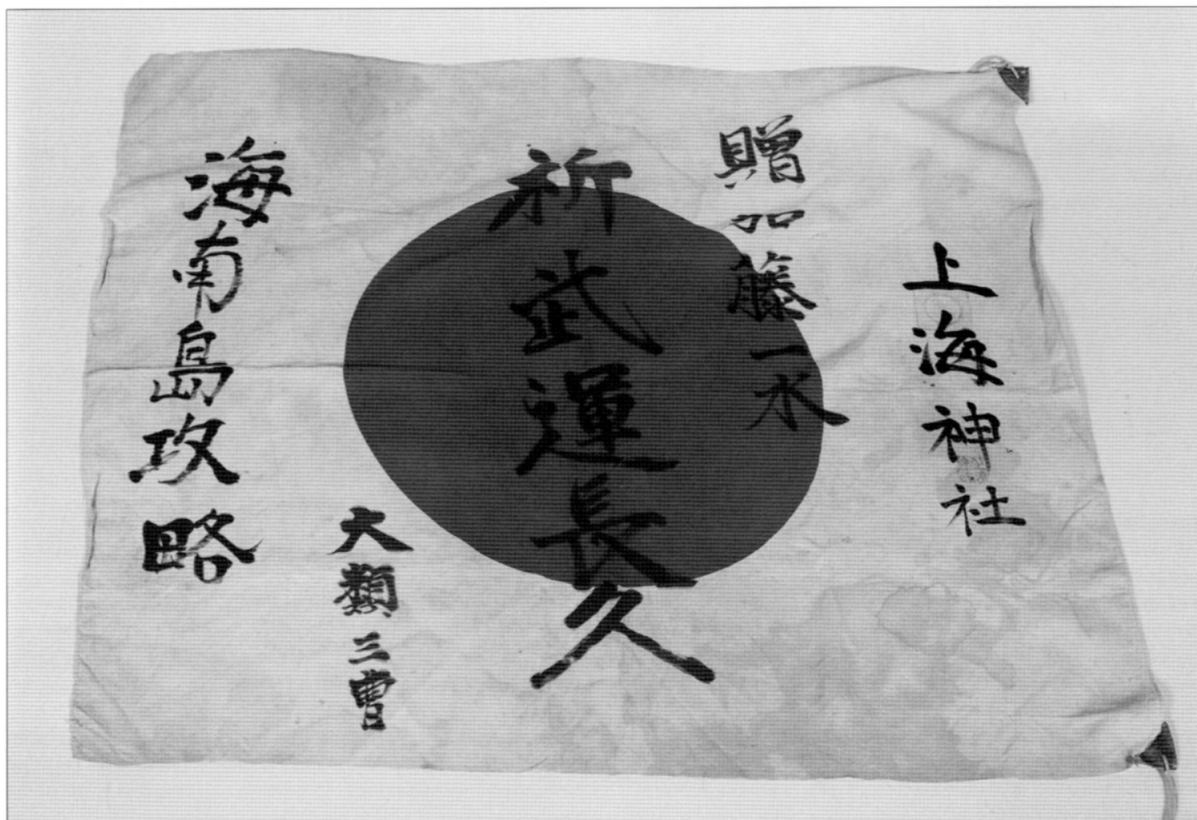 上海神社
贈加藤一水
祈武運長久
大類三曹
海南島攻略